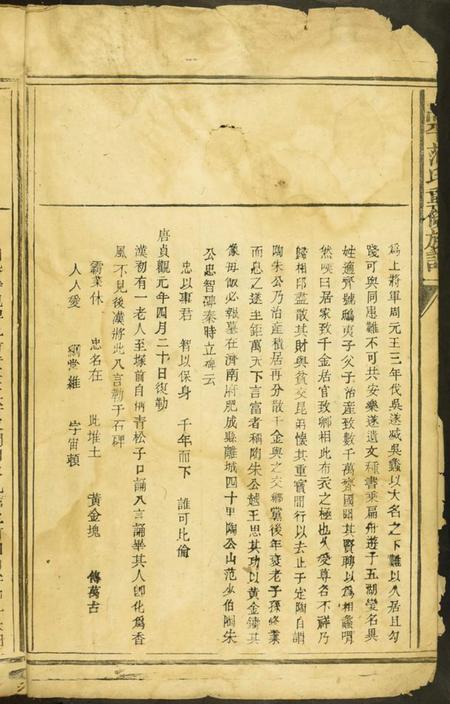 為上將軍周元王三年伐吳遂滅吳蠡以大名之下難以久居且勾
踐可與同患難不可共安樂遂遺文種書乘扁舟遊于五湖變名易
姓適齊號鴟夷子父子治產致數千萬齊國聞其賢聘以為相蠡喟
然嘆曰居家致千金居官致卿相此布衣之極也久受尊名不祥乃
歸相印盡散其財與貧交昆弟懷其重寶間行以去止于定陶自謂
陶朱公乃治產積居再分散千金與之交鄉黨後年衰老子孫修業
而息之遂至鉅萬天下言富者稱陶朱公越王思其功以黃金鑄其
像每飯必報墓在濟南府肥成縣離城四十里陶公山范少伯陶朱
公忠智碑秦時立碑云
忠以事君 智以保身 千年而下 誰可比倫
唐貞觀元年四月二十日復勒
漢初有一老人至塚前自稱青松子口誦八言誦畢其人卽化為香
風不見後漢將此八言勒于石碑
霸業休 忠名在 此堆土 黃金塊 傳萬古
人人愛 綱常維 宇宙賴
范氏重修族譜